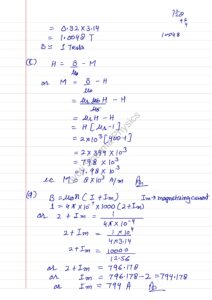 = 0.32 × 3.14
= 1.0048 T
1.0048
B = 1 Tesla
(c) H = B/μ₀ - M
or M = B/μ₀ - H
= μᵣμ₀H/μ₀ - H
= μᵣH - H
= H [μᵣ - 1]
= 2×10³ [400-1]
= 2×399×10³
= 798×10³
= 7.98×10⁵
i.e. M = 8×10⁵ A/m
(d) B = μ₀n (I + Im) Im → magnetising current
1 = 4π×10⁻⁷×1000 (2+Im)
or 2 + Im = 1/(4π×10⁻⁴)
2 + Im = 1×10⁴/(4×3.14)
2 + Im = 10000/12.56
or 2 + Im = 796.178
or Im = 796.178 - 2 = 794.178
or Im = 794 A